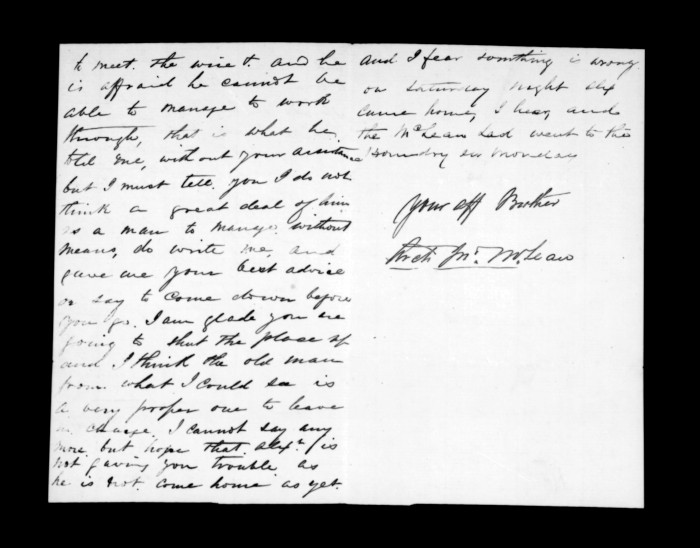 to meet. the wire &. and he
is affraid he cannot be
able to manage to work
through, that is what he
told me, without your assistance
but I must tell. you I do not
think a great deal of him
as a man to manage without
means, do write me, and
gave me your best advice
or say to come down before
you go. I am glade you are
going to shut the place up
and I think the old man
from what I could see is
a very proper one to leave
in charge. I cannot say any
more but hope that Alexr. is
not gaving you trouble as
he is not. come home as yet.
and I fear somthing is wrong
on Saturday night Alex
came home, I hear, and
the McLean Lad went to the
on Monday
Your aff Brother
Archd. Jn. McLean